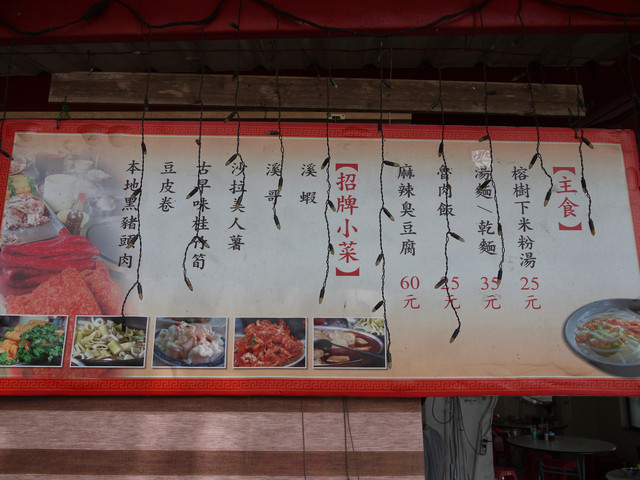 【主食】
榕樹下米粉湯 25元
湯麵、乾麵 35元
魯肉飯 25元
麻辣臭豆腐 60元
【招牌小菜】
溪蝦
溪哥
沙拉美人薯
古早味桂竹筍
豆皮卷
本地黑豬頭肉